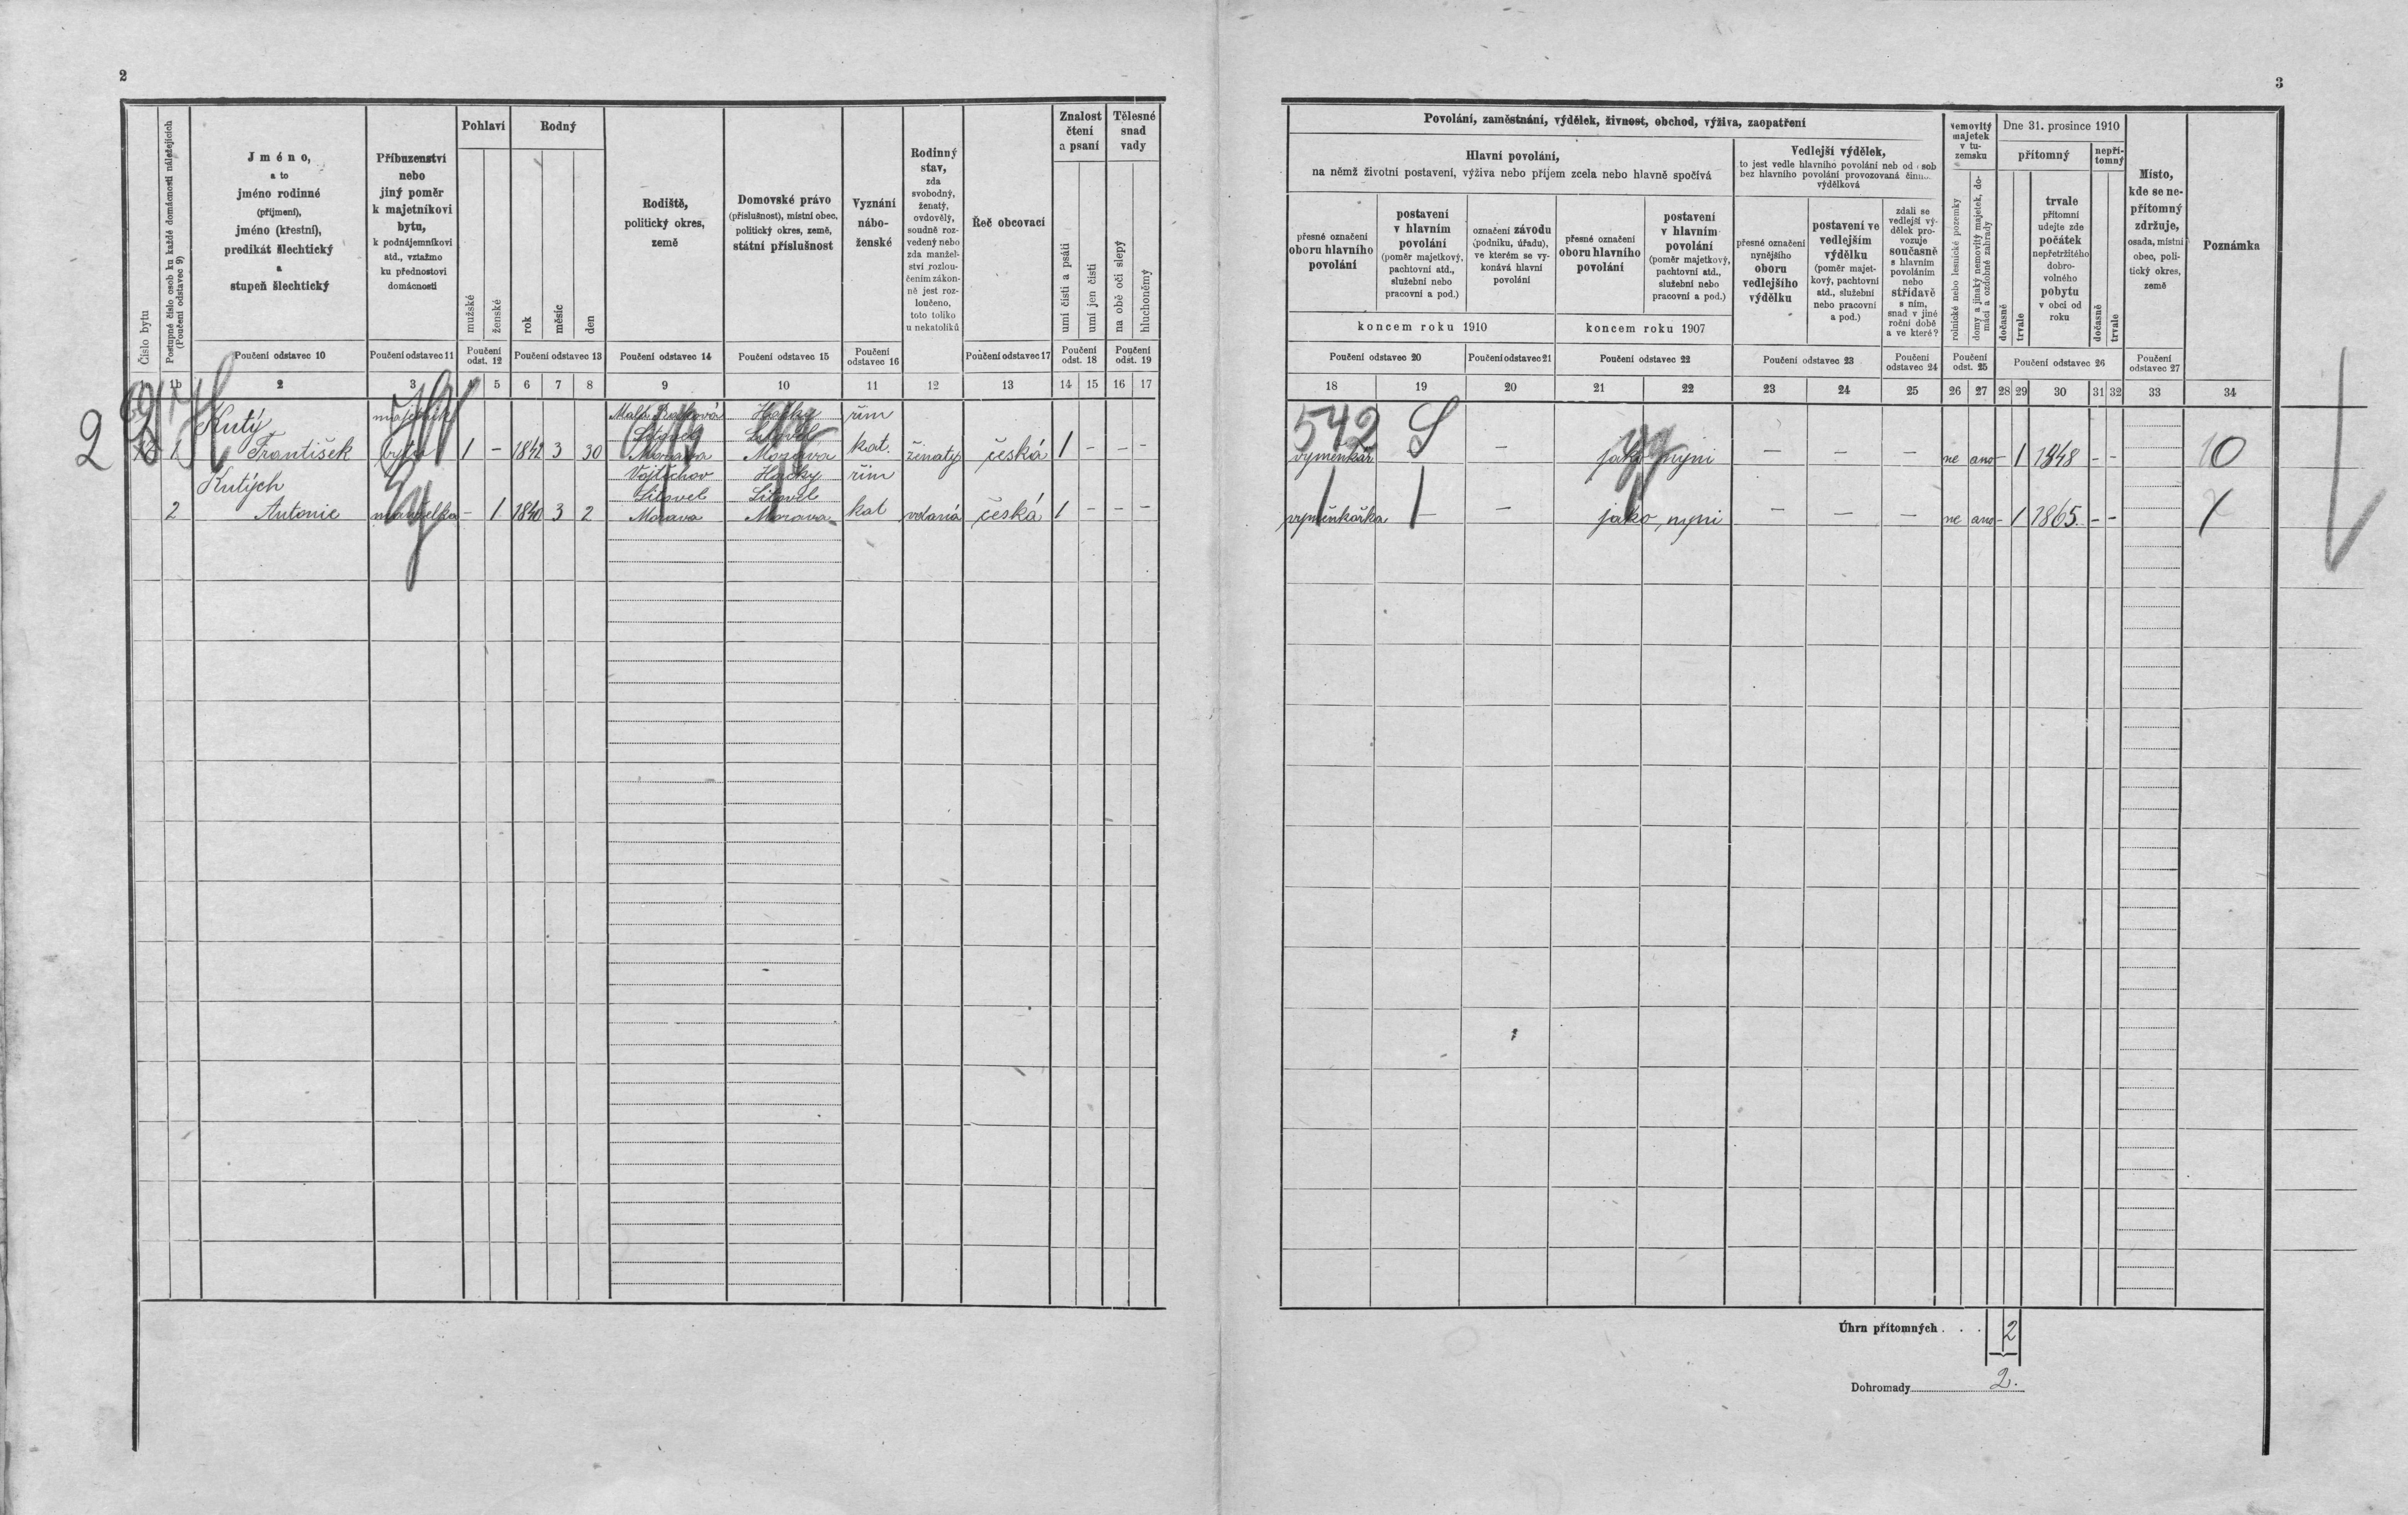 2
3
Číslo bytu
Postupné číslo osob ku každé domácnosti náležejících
(Poučení odstavec 9)
Jméno,
a to
jméno rodinné
(příjmení),
jméno (křestní),
predikát šlechtický
a
stupeň šlechtický
Příbuzenství
nebo
jiný poměr
k majetníkovi
bytu,
k podnájemníkovi
atd., vztažmo
ku přednostovi
domácnosti
Pohlaví
mužské
ženské
Rodný
rok
měsíc
den
Rodiště,
politický okres,
země
Domovské právo
(příslušnost), místní obec,
politický okres, země,
státní příslušnost
Vyznání
nábo-
ženské
Rodinný
stav,
zda
svobodný,
ženatý,
ovdovělý,
soudně roz-
vedený nebo
zda manžel-
ství rozlou-
čením zákon-
ně jest roz-
loučeno,
toto toliko
u nekatolíků
Řeč obcovací
Znalost
čtení
a psaní
umí čísti a psáti
umí jen čísti
Tělesné
snad
vady
na obě oči slepý
hluchoněmý
Poučení odstavec 10
Poučení odstavec 11
Poučení
odst. 12
Poučení odstavec 13
Poučení odstavec 14
Poučení odstavec 15
Poučení
odstavec 16
Poučení odstavec 17
Poučení
odst. 18
Poučení
odst. 19
1b 2 3 4 5 6 7 8 9 10 11 12 13 14 15 16 17
Povolání, zaměstnání, výdělek, živnost, obchod, výživa, zaopatření
Hlavní povolání,
na němž životní postavení, výživa nebo příjem zcela nebo hlavně spočívá
přesné označení
oboru hlavního
povolání
postavení
v hlavním
povolání
(poměr majetkový,
pachtovní atd.,
služební nebo
pracovní a pod.)
koncem roku 1910
označení závodu
(podniku, úřadu),
ve kterém se vy-
konává hlavní
povolání
přesné označení
oboru hlavního
povolání
postavení
v hlavním
povolání
(poměr majetkový,
pachtovní atd.,
služební nebo
pracovní a pod.)
koncem roku 1907
Vedlejší výdělek,
to jest vedle hlavního povolání neb od osob
bez hlavního povolání provozovaná činn..
výdělková
přesné označení
nynějšího
oboru
vedlejšího
výdělku
postavení ve
vedlejším
výdělku
(poměr majet-
kový, pachtovní
atd., služební
nebo pracovní
a pod.)
zdali se
vedlejší vý-
dělek pro-
vozuje
současně
s hlavním
povoláním
nebo
střídavě
s ním,
snad v jiné
roční době
a ve které?
Nemovitý
majetek
v tu-
zemsku
rolnické nebo lesnické pozemky
domy a jinaký nemovitý majetek, do-
mácí a ozdobné zahrady
Dne 31. prosince 1910
přítomný
dočasně
trvale
trvale
přítomní
udejte zde
počátek
nepřetržitého
dobro-
volného
pobytu
v obci od
roku
nepří-
tomný
dočasně
trvale
Místo,
kde se ne-
přítomný
zdržuje,
osada, místní
obec, poli-
tický okres,
země
Poznámka
Poučení odstavec 20
Poučení odstavec 21
Poučení odstavec 22
Poučení odstavec 23
Poučení
odstavec 24
Poučení
odst. 25
Poučení odstavec 26
Poučení
odstavec 27
18 19 20 21 22 23 24 25 26 27 28 29 30 31 32 33 34
Kutý majetník Hačky řím 542 S
2 Litovel Litovel
1 František bytu 1 - 1842 3 30 Morava Morava kat. ženatý česká 1 - - - výměnkář - jako nyní - - - ne ano - 1 1848 - - 10
Kutých Vojtěchov Hačky řím
Litovel Litovel
2 Antonie manželka - 1 1840 3 2 Morava Morava kat vdaná česká 1 - - - výměnkářka - - jako nyní - - - ne ano - 1 1865. - -
Úhrn přítomných . . . 2
Dohromady 2.